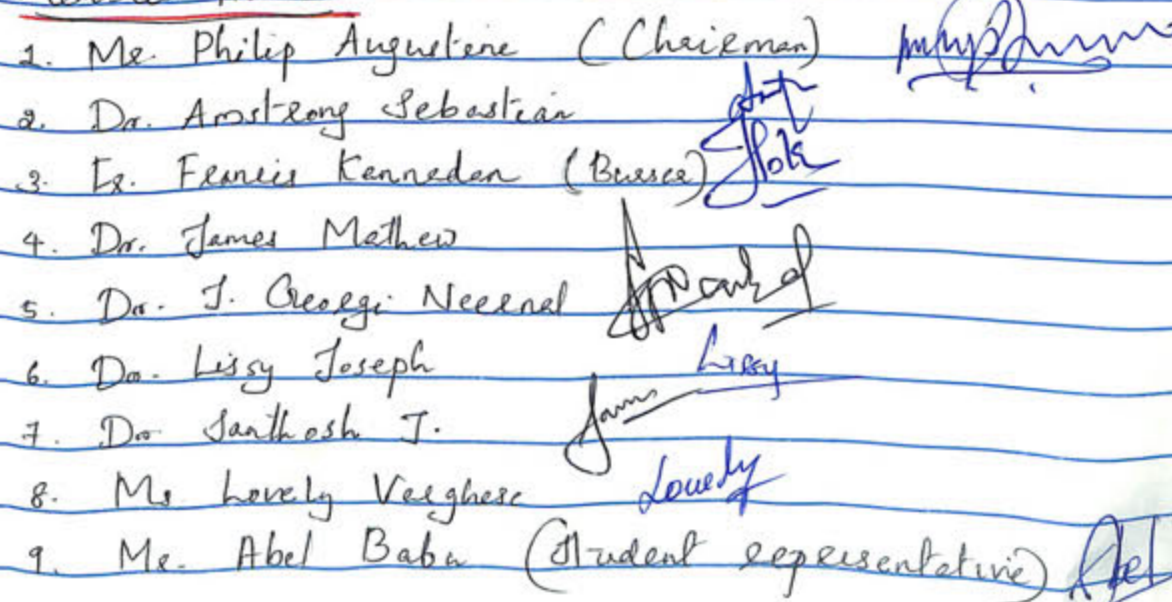 1. Mr. Philip Augustine (Chairman)
2. Dr. Armstrong Sebastian
3. Fr. Francis Kannedan (Bursar)
4. Dr. James Mathew
5. Dr. J. Georgi Neernal
6. Dr. Lissy Joseph Lissy
7. Dr Santhosh J.
8. Ms Lovely Varghese Lovely
9. Mr. Abel Babu (Student representative) Abel